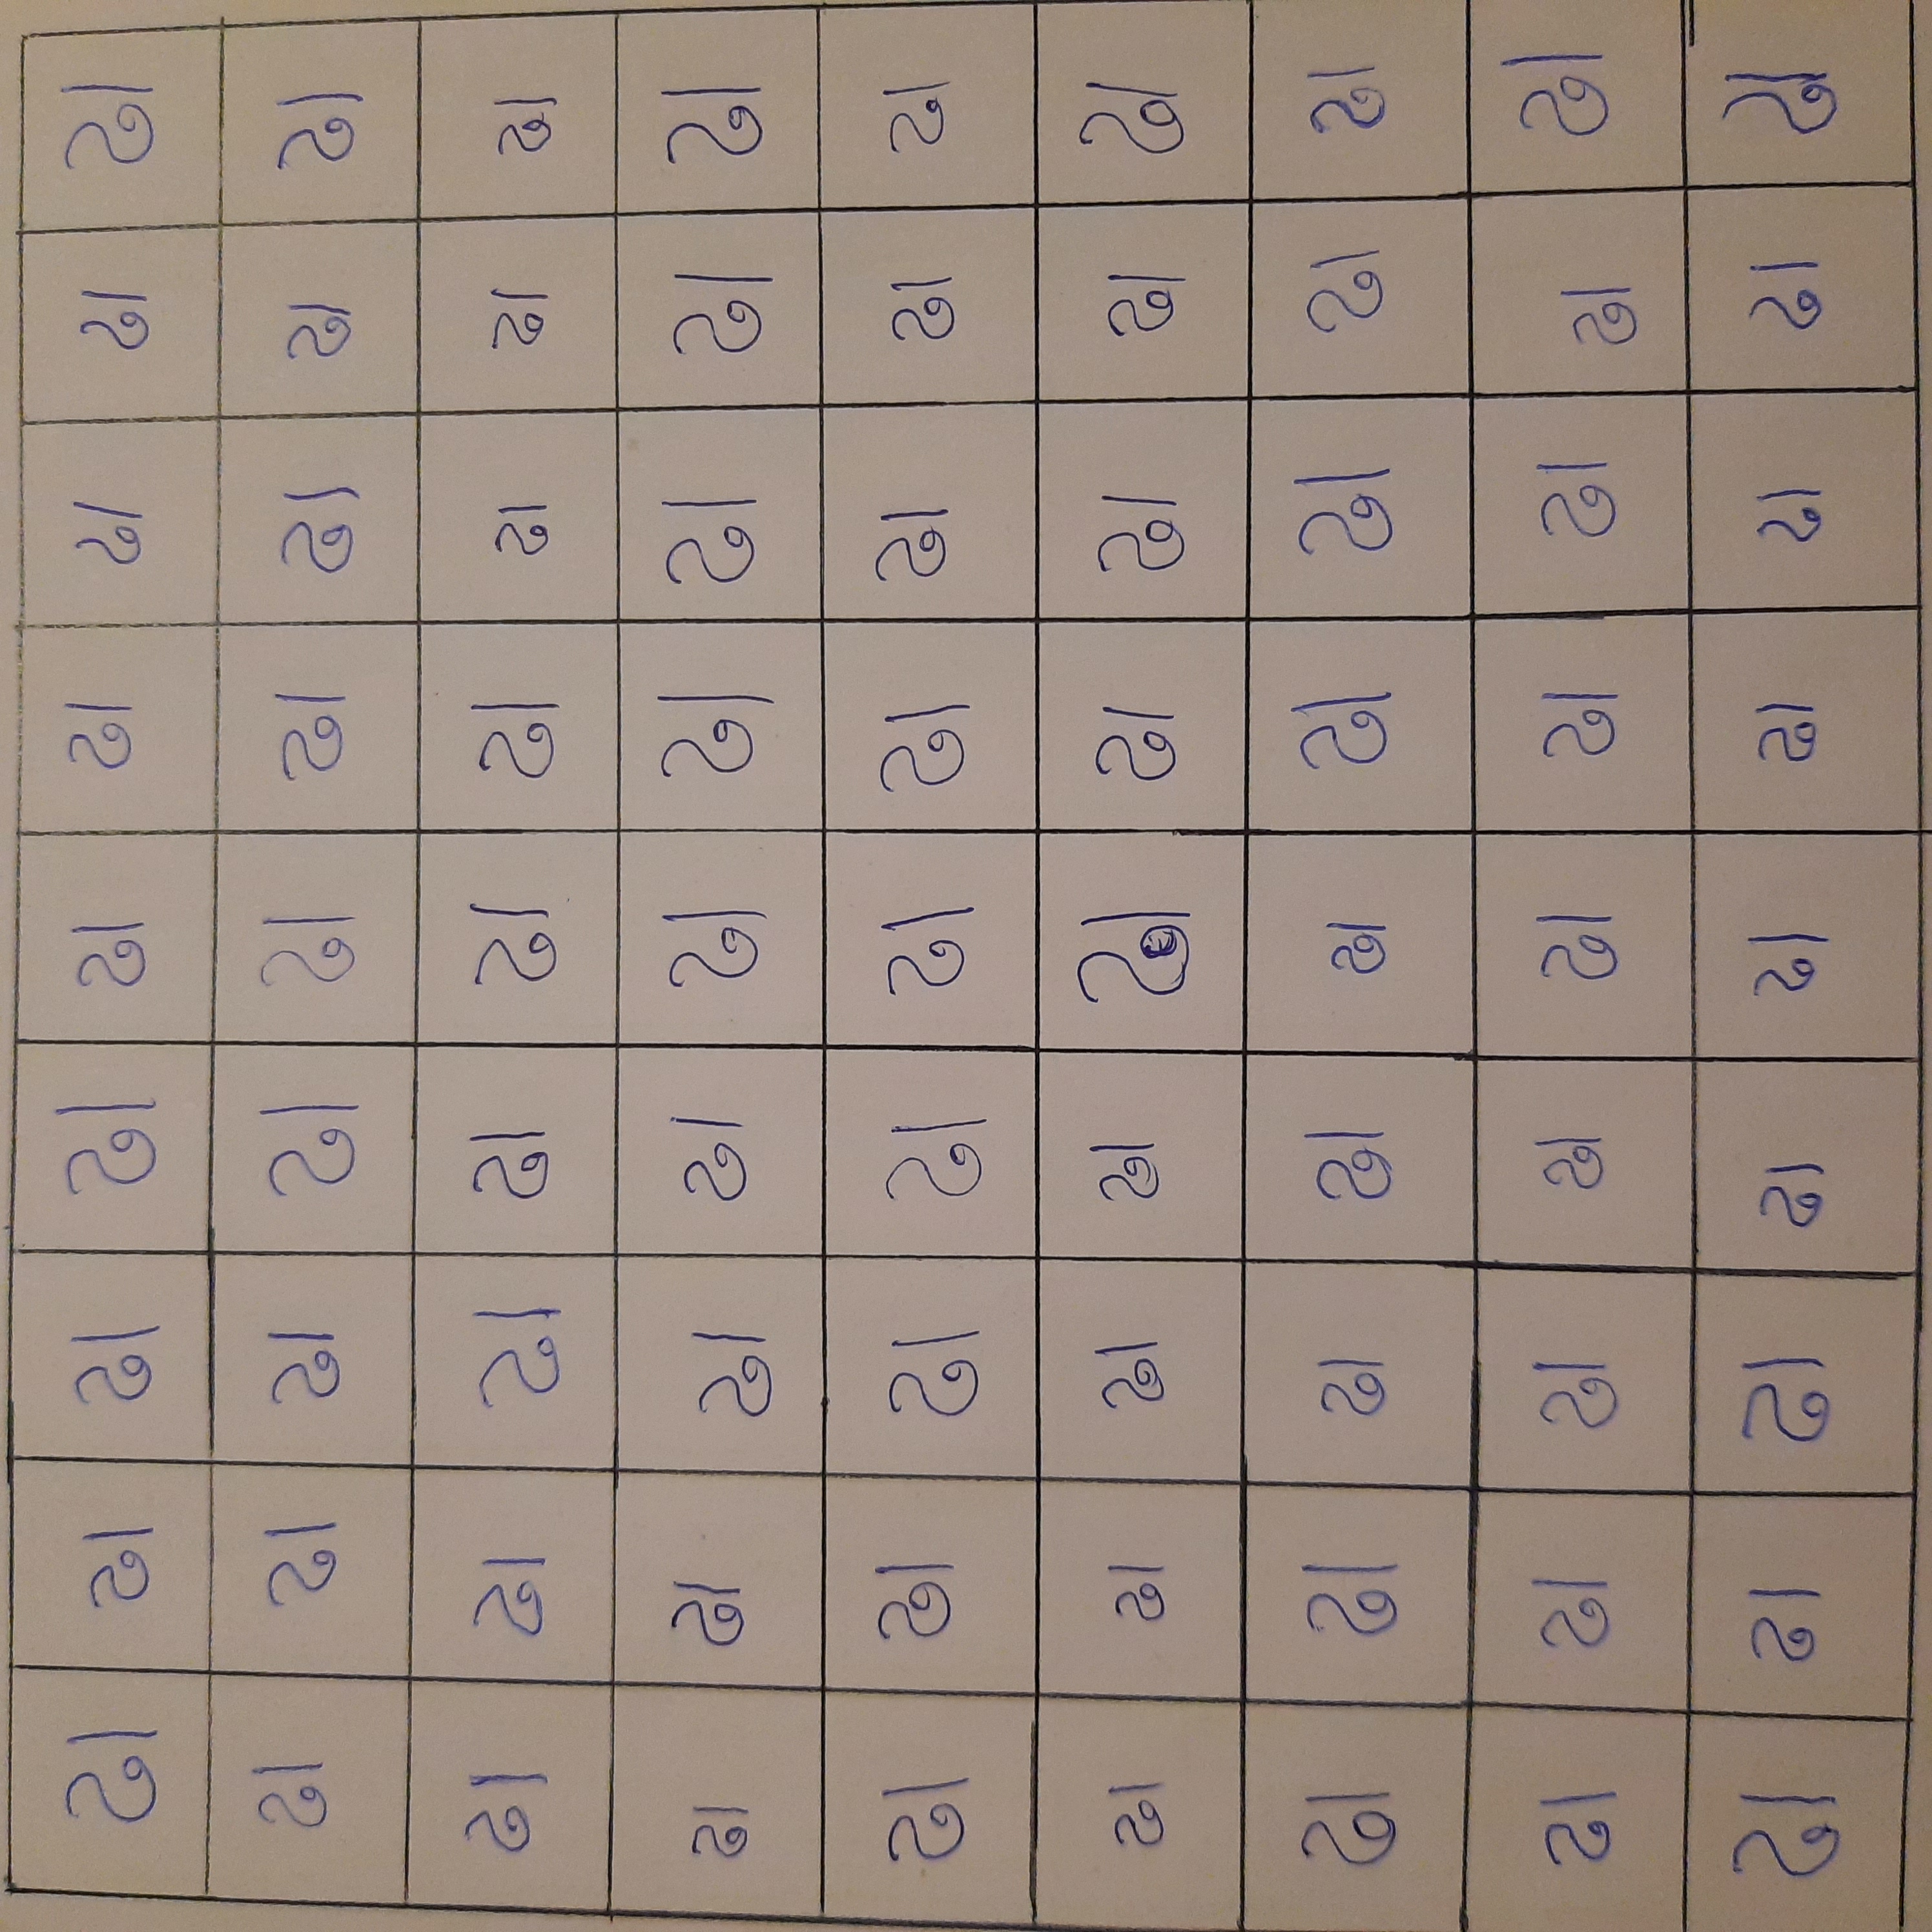 ઢા ઢા ઢા ઢા ઢા ઢા ઢા ઢા ઢા
ઢા ઢા ઢા ઢા ઢા ઢા ઢા ઢા ઢા
ઢા ઢા ઢા ઢા ઢા ઢા ઢા ઢા ઢા
ઢા ઢા ઢા ઢા ઢા ઢા ઢા ઢા ઢા
ઢા ઢા ઢા ઢા ઢા ઢા ઢા ઢા ઢા
ઢા ઢા ઢા ઢા ઢા ઢા ઢા ઢા ઢા
ઢા ઢા ઢા ઢા ઢા ઢા ઢા ઢા ઢા
ઢા ઢા ઢા ઢા ઢા ઢા ઢા ઢા ઢા
ઢા ઢા ઢા ઢા ઢા ઢા ઢા ઢા ઢા